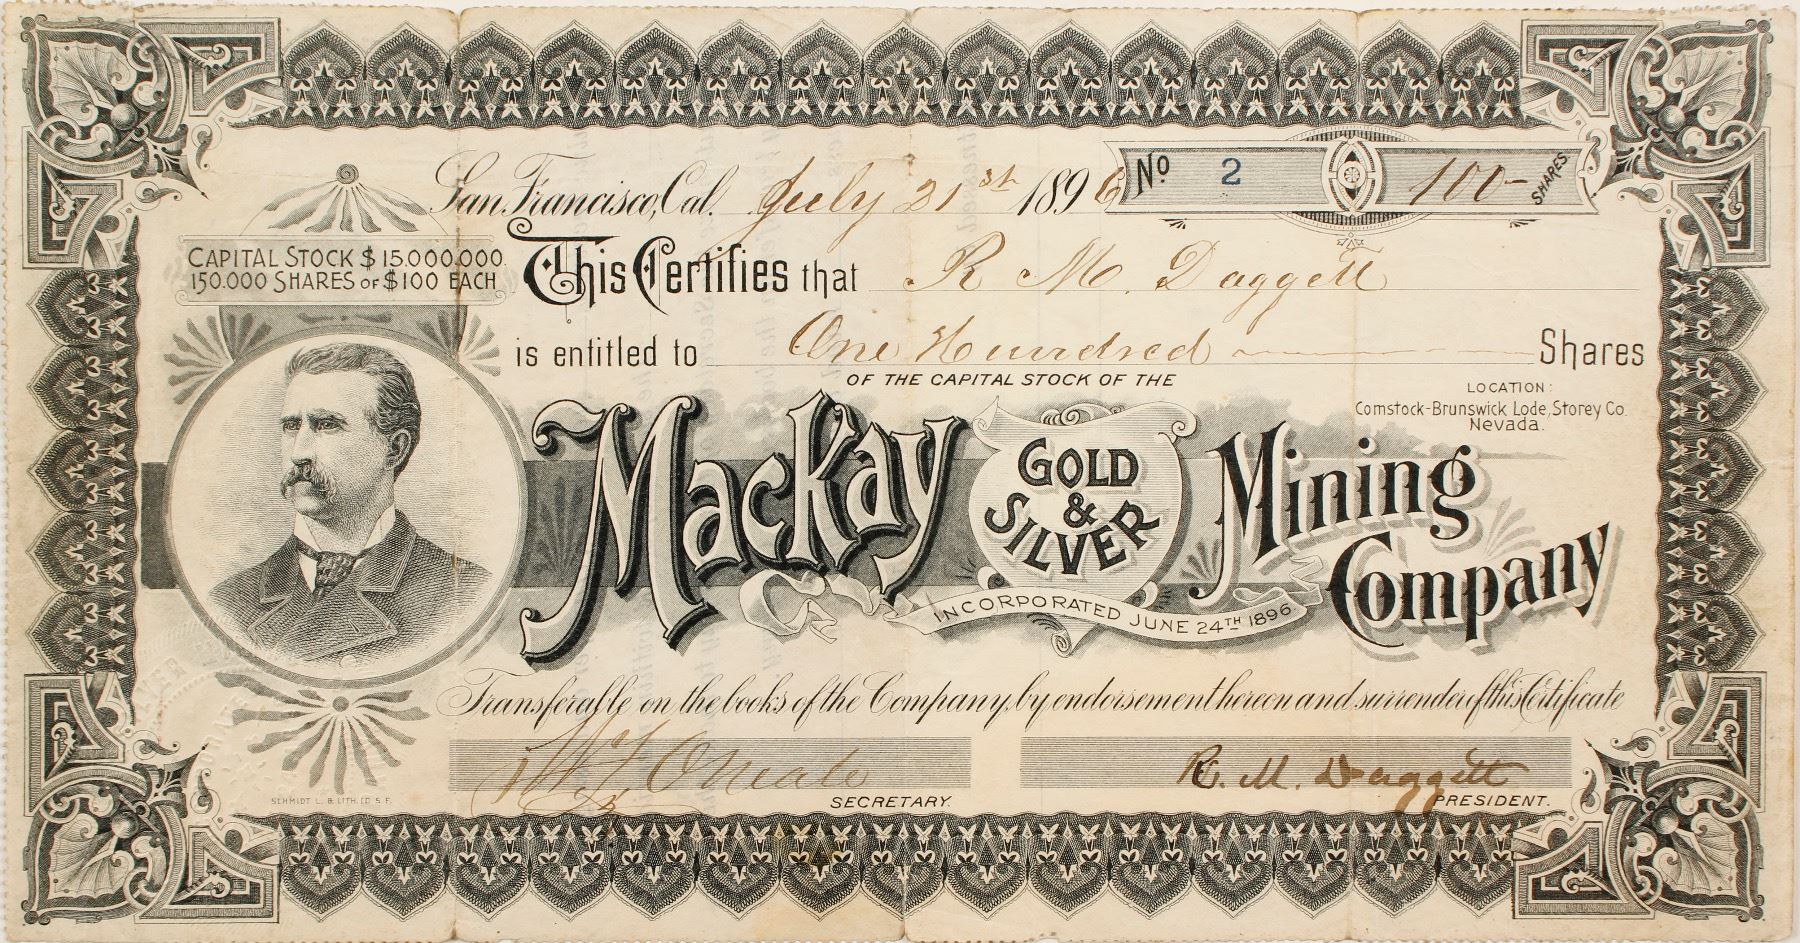 San Francisco, Cal. July 21st 1896
No 2 100- SHARES
CAPITAL STOCK $15.000.000.
150.000 SHARES OF $100 EACH
This Certifies that R. M. Daggett
is entitled to One Hundred Shares
OF THE CAPITAL STOCK OF THE
LOCATION:
Comstock-Brunswick Lode, Storey Co.
Nevada.
MacKay GOLD & SILVER Mining Company
INCORPORATED JUNE 24TH 1896.
Transferable on the books of the Company, by endorsement hereon and surrender of this Certificate
O'Neale
SECRETARY.
R. M. Daggett
PRESIDENT.
SCHMIDT L. & LITH. CO S. F.